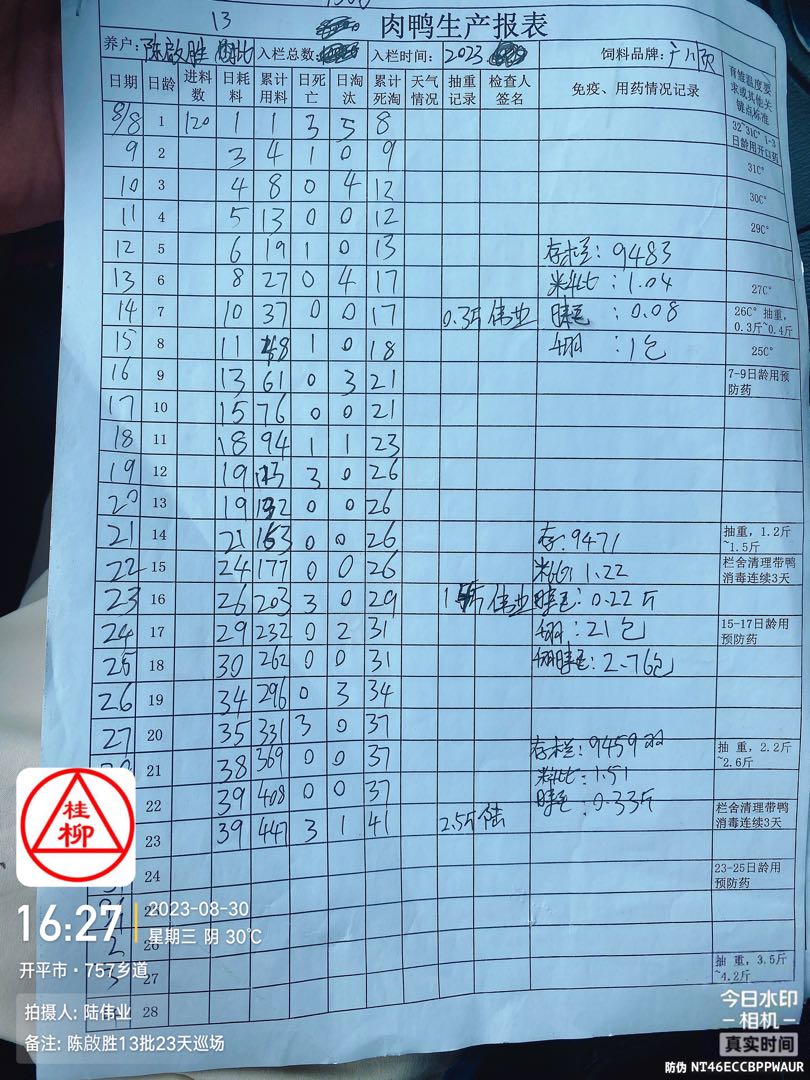 13 肉鸭生产报表
养户: 陈啟胜 入栏总数: 入栏时间: 2023 饲料品牌:
日期 日龄 进料数 日耗料 累计用料 日死亡 日淘汰 累计死淘 天气情况 抽重记录 检查人签名 免疫、用药情况记录 育雏温度要求或其他关键点标准
8/8 1 120 1 1 3 5 8 32°31C° 1-3日龄用开口药
9 2 3 4 1 0 9 31C°
10 3 4 8 0 4 12 30C°
11 4 5 13 0 0 12 29C°
12 5 6 19 1 0 13 存栏: 9483
13 6 8 27 0 4 17 : 1.04 27C°
14 7 10 37 0 0 17 0.3斤 伟业 : 0.08 26C° 抽重, 0.3斤~0.4斤
15 8 11 48 1 0 18 : 1包 25C°
16 9 13 61 0 3 21 7-9日龄用预防药
17 10 15 76 0 0 21
18 11 18 94 1 1 23
19 12 19 3 0 26
20 13 19 0 0 26
21 14 21 153 0 0 26 存: 9471 抽重, 1.2斤~1.5斤
22 15 24 177 0 0 26 : 1.22 栏舍清理带鸭消毒连续3天
23 16 26 203 3 0 29 伟业 : 0.22斤
24 17 29 232 0 2 31 : 21包 15-17日龄用预防药
25 18 30 262 0 0 31 : 2.76包
26 19 34 296 0 3 34
27 20 35 331 3 0 37 存栏: 9459羽 抽重, 2.2斤~2.6斤
21 38 369 0 0 37 : 1.51
22 39 408 0 0 37 : 0.33斤 栏舍清理带鸭消毒连续3天
23 39 447 3 1 41 2.5斤 陆
24 23-25日龄用预防药
2 26
27 抽重, 3.5斤~4.2斤
28
桂柳
16:27 2023-08-30
星期三 阴 30℃
开平市·757乡道
拍摄人: 陆伟业
备注: 陈啟胜13批23天巡场
今日水印
相机
真实时间
防伪 NT46ECCBPPWAUR